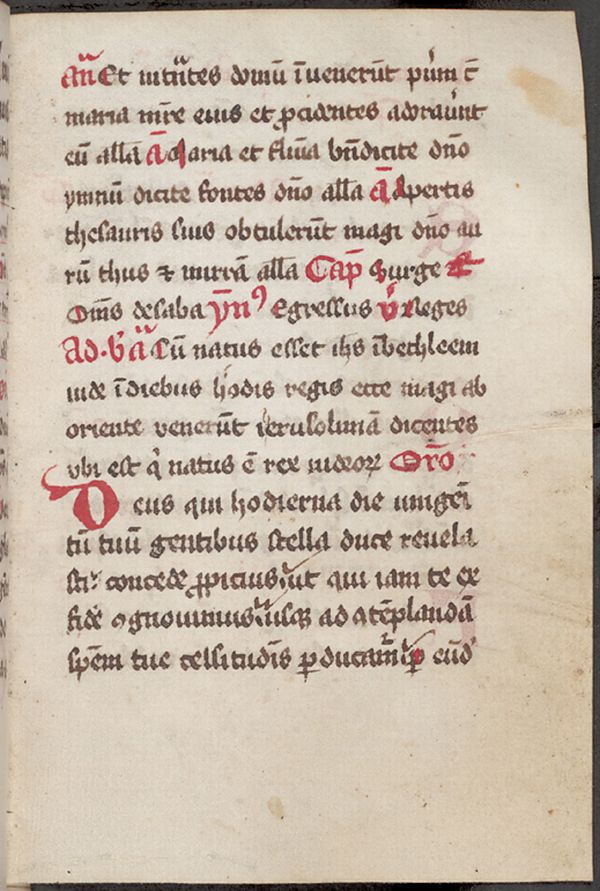 Añ Et intrātes domū īvenerūt puẽm c̄
maria mr̄e eius et ꝓcidentes adoraūnt
eū allã Ã Maria et flūīa bn̄dicite dn̄o
ymnū dicite fontes dn̄o allã Ã Apertis
thesauris suis obtulerūt magi dn̄o au
rū thus ⁊ mirrã allã Cap̄ Surge
Om̄s de saba yn̄ꝰ Egressus v̄ Reges
Ad · b̄ ã Cū natus esset ihs ībethleem
iude īdiebus hodis regis ecce magi ab
oriente venerūt ierusolimã dicentes
vbi est q̄ natus ē rex iudeoꝝ Or̄o
Deus qui hodierna die unigei
tū tuū gentibus stella duce reuela
sti concede ꝓpicius ut qui iam te ex
fide ꝯgnouimus usqꝫ ad ꝯtēplandã
spēm tue celsitudīs ꝑducam̃ ꝑ eūd